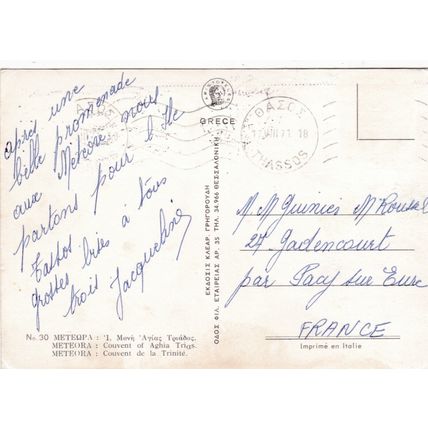 après une
belle promenade
aux Météores nous
partons pour l'île
Tassos
grosses bises à tous
trois Jacqueline
GRECE
ΘΑΣΟΣ
THASSOS
ΕΚΔΟΣΙΣ ΚΛΕΑΡ. ΓΡΗΓΟΡΟΥΔΗ
ΟΔΟΣ ΦΙΛ. ΕΤΑΙΡΕΙΑΣ ΑΡ. 35 ΤΗΛ. 34.966 ΘΕΣΣΑΛΟΝΙΚΗ
M Mr Guinier M Roussel
27 Gadencourt
par Pacy sur Eure
FRANCE
Imprimé en Italie
No. 30 ΜΕΤΕΩΡΑ : Ἱ. Μονὴ Ἁγίας Τριάδος.
METEORA : Couvent of Aghia Trias.
METEORA : Couvent de la Trinité.